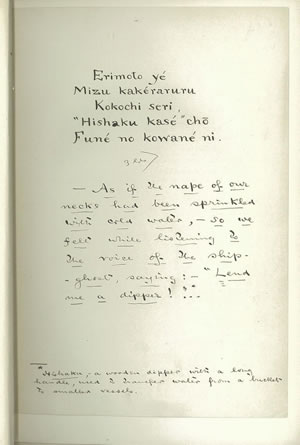 Erimoto yé
Mizu kakéraruru
Kokochi seri,
"Hishaku kasé" chō
Funé no kowané ni.
— As if the nape of our
necks had been sprinkled
with cold water, — so we
felt while listening to
the voice of the ship-
-ghost, saying: — "Lend
me a dipper!"
Hishaku, a wooden dipper with a long
handle, used to transfer water from a bucket
to smaller vessels.